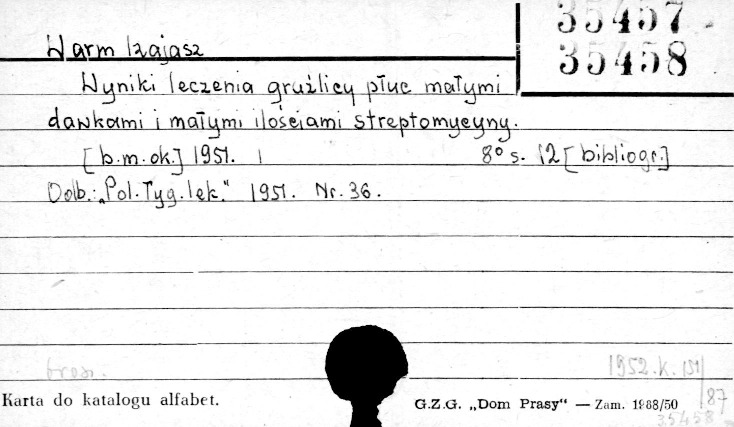 35457
35458
Warm Izajasz
Wyniki leczenia gruźlicy płuc małymi
dawkami i małymi ilościami streptomycyny.
[b.m.ok.] 1951. 8° s. 12 [bibliogr.]
Odb.: „Pol. Tyg. lek." 1951. Nr. 36.
brosz.
1952.k.151/
87
Karta do katalogu alfabet.
G.Z.G. „Dom Prasy“ — Zam. 1988/50
35458